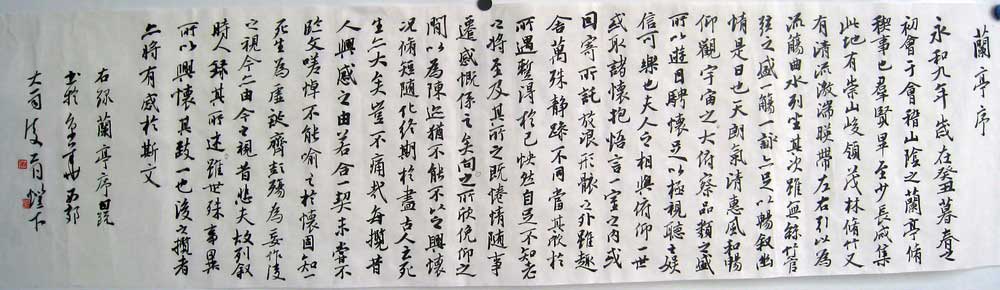 蘭亭序
永和九年歲在癸丑暮春之
初會于會稽山陰之蘭亭脩
稧事也羣賢畢至少長咸集
此地有崇山峻領茂林脩竹又
有清流激湍暎帶左右引以為
流觴曲水列坐其次雖無絲竹管
弦之盛一觴一詠亦足以暢叙幽
情是日也天朗氣清惠風和暢
仰觀宇宙之大俯察品類之盛
所以遊目騁懷足以極視聽之娛
信可樂也夫人之相與俯仰一世
或取諸懷抱悟言一室之内或
因寄所託放浪形骸之外雖趣
舍萬殊静躁不同當其欣於
所遇暫得於己怏然自足不知老
之將至及其所之既惓情隨事
遷感慨係之矣向之所欣俛仰之
閒以為陳迹猶不能不以之興懷
况脩短隨化終期於盡古人云死
生亦大矣豈不痛哉每攬昔
人興感之由若合一契未嘗不
臨文嗟悼不能喻之於懷固知一
死生為虛誕齊彭殤為妄作後
之視今亦由今之視昔悲夫故列叙
時人録其所述雖世殊事異
所以興懷其致一也後之攬者
亦將有感於斯文
右録蘭亭序
書於西郊
燈下